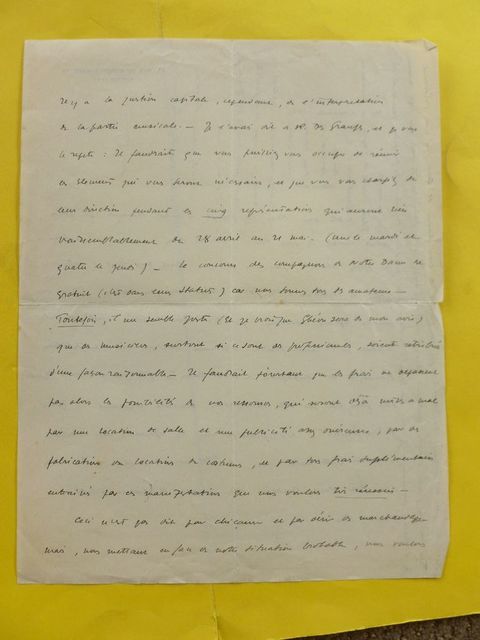 Il y a la question capitale, cependant, de l'interprétation
de la partie musicale. — Je l'avais dit à M. Des Granges, et je vous
le répète : Il faudrait que vous puissiez vous occuper de réunir
les éléments qui vous seront nécessaires, et que vous vous chargiez de
leur direction pendant les cinq représentations qui auront lieu
vraisemblablement du 28 avril au 21 mai. (une le mardi et
quatre le jeudi) — Le concours des Compagnons de Notre Dame est
gratuit (c'est dans leurs statuts) car nous sommes tous des amateurs —
Toutefois, il me semble juste (et je crois que Ghéon sera de mon avis)
que les musiciens, surtout si ce sont des professionnels, soient rétribués
d'une façon raisonnable — Il faudrait pourtant que les frais ne dépassent
pas alors les possibilités de nos ressources, qui seront déjà mises à mal
par une location de salle et une publicité assez onéreuses, par des
fabrications ou locations de costumes, et par tous frais supplémentaires
entraînés par ces manifestations que nous voulons très réussies —
Ceci n'est pas dit par chicane et par désir de marchandage
mais, vous mettant en face de notre situation véritable, nous voulons